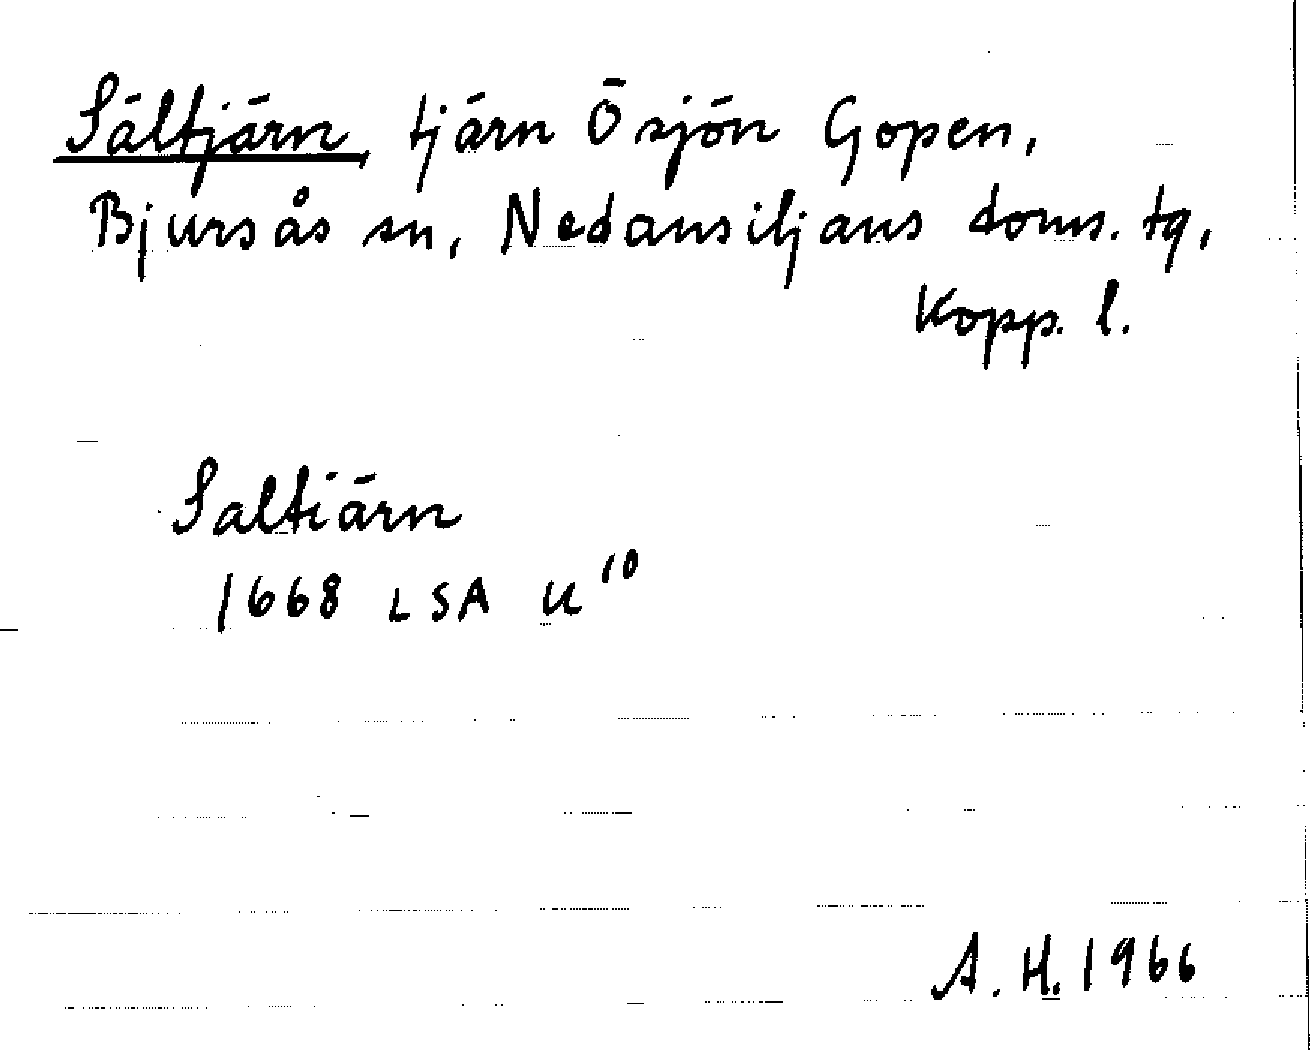 Sältjärn, tjärn Ö sjön Gopen,
Bjursås sn, Nedansiljans doms. tg,
Kopp. l.
Saltiärn
1668 LSA U¹⁰
A. H. 1966